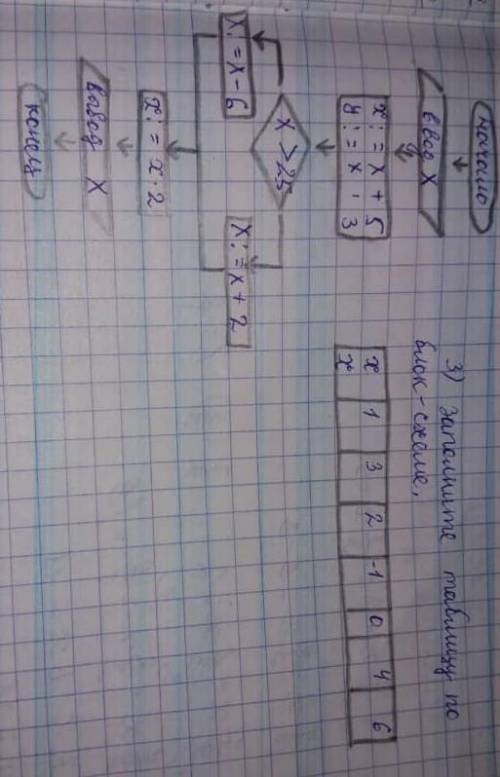 начало
ввод X
x:=x+5
y:=x·3
x>25
X:=x-6
X:=x+2
x:=x·2
вывод X
конец
3) Заполните таблицу по
блок-схеме.
x 1 3 2 -1 0 4 6
x